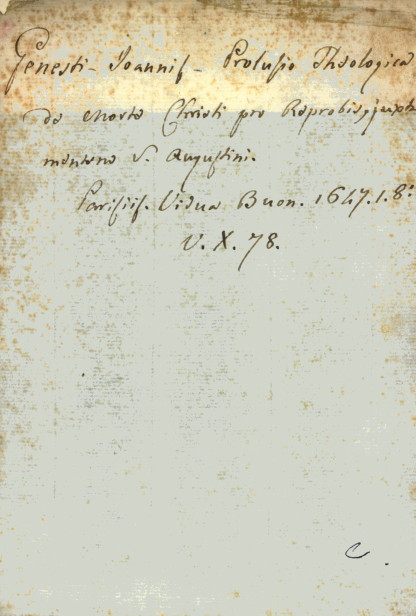 Genesti - Joannis - Prolusio Theologica
de Morte Christi pro Reprobis, juxta
mentem S. Augustini.
Parisiis. Vidua Buon. 1647. 1. 8º
V. X. 78.
C.